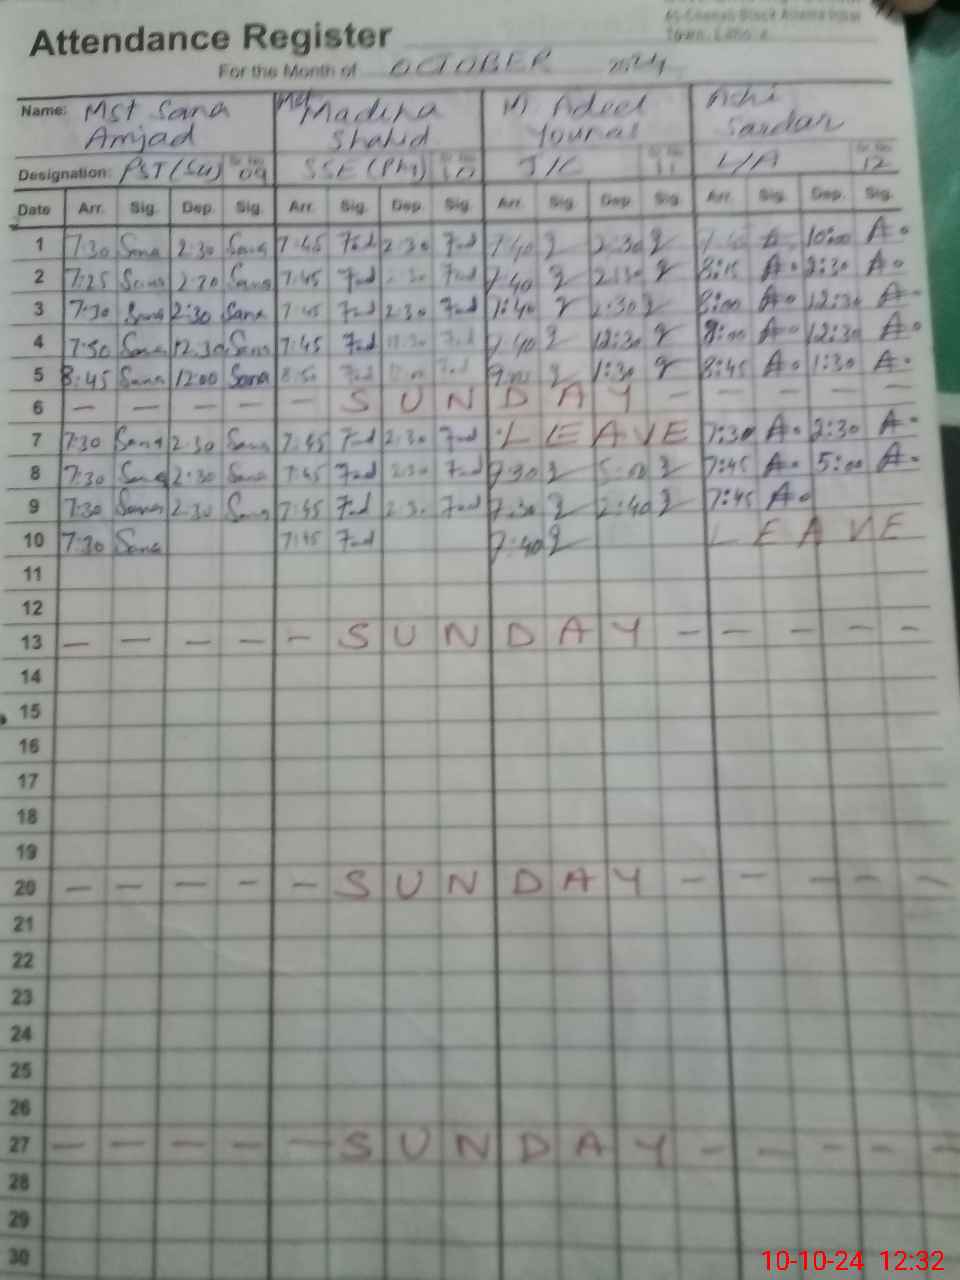 65-Chenab Block Allama Iqbal
Town, Lahore
Attendance Register
For the Month of OCTOBER 2024
Name: Mst Sana Mst Madiha M Adeel Sardar
Amjad Shahid Younas
Designation: PST (Su) Sr. No. 09 SSE (Phy) Sr. No. 10 J/C Sr. No. 11 L/A Sr. No. 12
Date Arr. Sig. Dep. Sig. Arr. Sig. Dep. Sig. Arr. Sig. Dep. Sig. Arr. Sig. Dep. Sig.
1 7:30 Sana 2:30 Sana 7:45 2:30 7:40 2:30 10:00 A.
2 7:25 Sana 2:30 Sana 7:45 7:40 2:30 8:15 A. 2:30 A.
3 7:30 Sana 2:30 Sana 7:45 2:30 7:40 2:30 8:00 A. 12:30 A.
4 7:50 Sana 12:30 Sana 7:45 12:30 7:40 12:30 8:00 A. 12:30 A.
5 8:45 Sana 12:00 Sana 8:50 9:00 1:30 8:45 A. 1:30 A.
6 – – – – – S U N D A Y – – – – –
7 7:30 Sana 2:30 Sana 7:45 2:30 L E A V E 7:30 A. 2:30 A.
8 7:30 Sana 2:30 Sana 7:45 2:30 7:30 5:00 7:45 A. 5:00 A.
9 7:30 Sana 2:30 Sana 7:45 2:30 7:30 2:40 7:45 A.
10 7:30 Sana 7:45 7:40 L E A V E
11
12
13 – – – – – S U N D A Y – – – – –
14
15
16
17
18
19
20 – – – – – S U N D A Y – – – – –
21
22
23
24
25
26
27 – – – – – S U N D A Y – – – – –
28
29
30
10-10-24 12:32